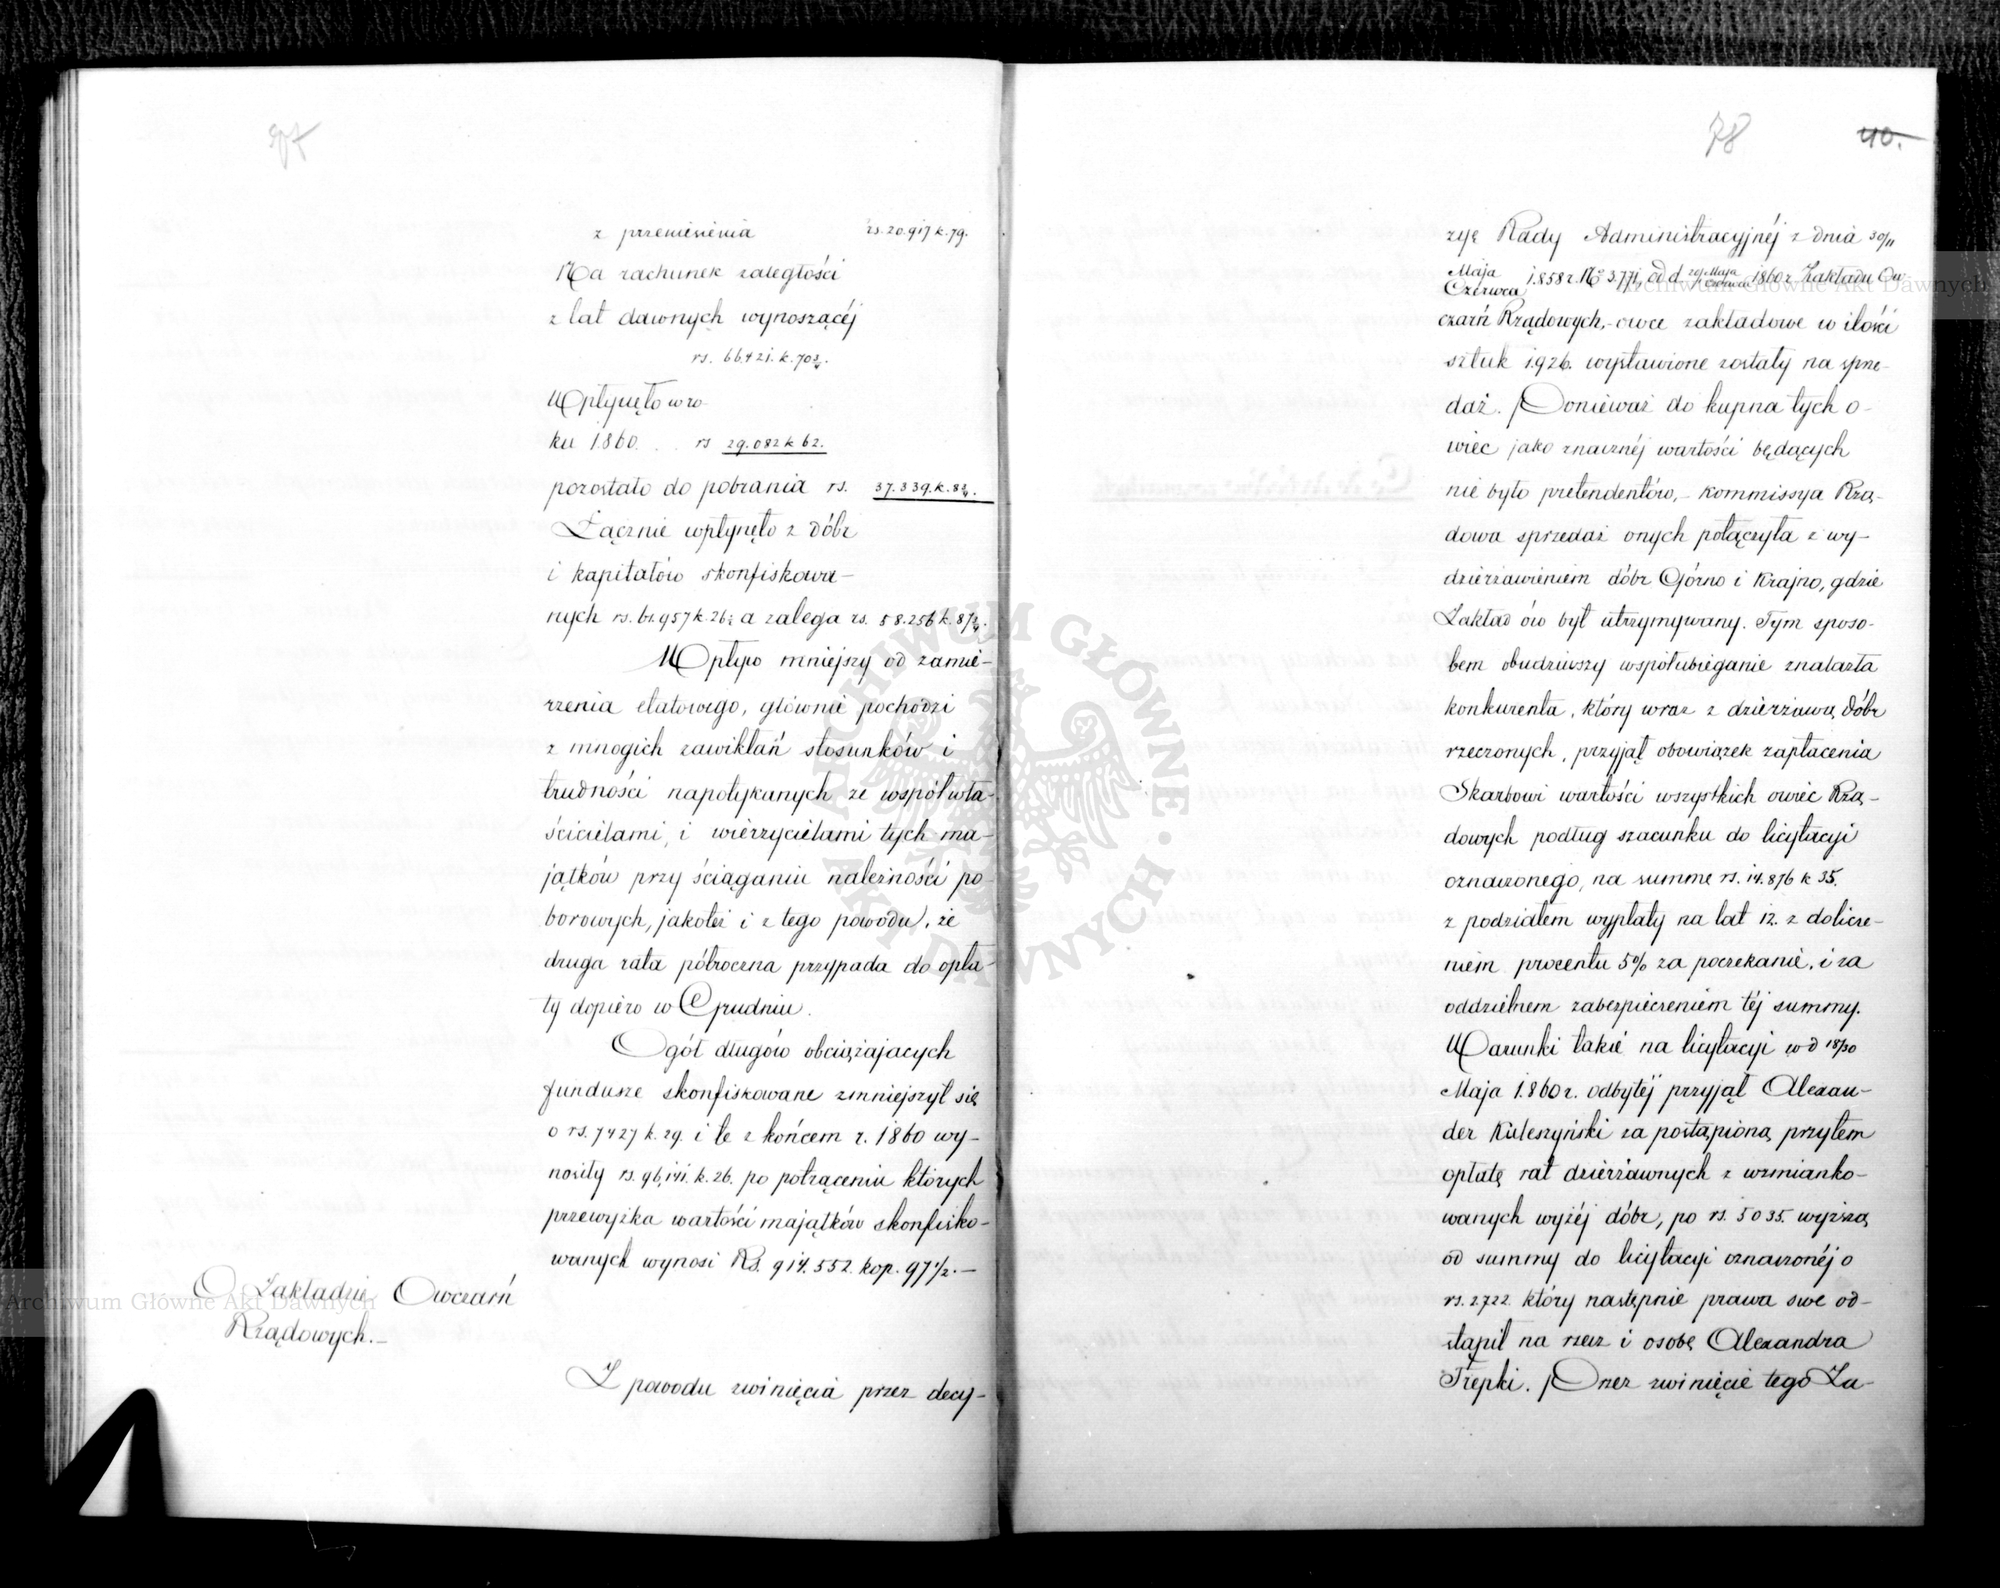 z przeniesienia rs. 20.917 k. 79.
Na rachunek zaległości
z lat dawnych wynoszącéj
rs. 66421. k. 70¾.
Wpłynęło w ro-
ku 1860. . . rs 29.082 k 62.
pozostało do pobrania rs. 37.339. k. 8¾.
Łącznie wpłynęło z dóbr
i kapitałów skonfiskowa-
nych rs. 61.957 k. 26½ a zalega rs. 58.256 k. 87¾.
Wpływ mniejszy od zamie-
rzenia etatowego, głównie pochodzi
z mnogich zawikłań stosunków i
trudności napotykanych ze współwła-
ścicielami, i wierzycielami tych ma-
jątków przy ściąganiu należności po-
borowych, jakoteż i z tego powodu, że
druga rata półroczna przypada do opła-
ty dopiero w Grudniu.
Ogół długów obciążających
fundusze skonfiskowane zmniejszył się
o rs. 7427 k. 29. i te z końcem r. 1860 wy-
nosiły rs. 96,141. k. 26. po potrąceniu których
przewyżka wartości majątków skonfisko-
wanych wynosi Rs. 914.552. kop. 97½.—
O Zakładzie Owczarń
Rządowych.—
Z powodu zwinięcia przez decy-
78 40.
zyę Rady Administracyjnéj z dnia 30/11
Maja
Czerwca 1858 r. No 3.771, od d. 20 Maja/1 Czerwca 1860 r. Zakładu Ow-
czarń Rządowych,- owce zakładowe w ilości
sztuk 1926. wystawione zostały na sprze-
daż. Ponieważ do kupna tych o-
wiec jako znacznéj wartości będących
nie było pretendentów,- Kommissya Rzą-
dowa sprzedaż onych połączyła z wy-
dzierżawieniem dóbr Górno i Krajno, gdzie
Zakład ów był utrzymywany. Tym sposo-
bem obudziwszy współubieganie znalazła
konkurenta, który wraz z dzierżawą dóbr
rzeczonych, przyjął obowiązek zapłacenia
Skarbowi wartości wszystkich owiec Rzą-
dowych podług szacunku do licytacyi
oznaczonego, na summę rs. 14.876 k 35.
z podziałem wypłaty na lat 12. z dolicze-
niem procentu 5% za poczekanie, i za
oddzielnem zabezpieczeniem téj summy.
Warunki takie na licytacyi w d 18/30
Maja 1860 r. odbytéj przyjął Alexan-
der Kuleszyński za postąpioną przytem
opłatę rat dzierżawnych z wzmianko-
wanych wyżéj dóbr, po rs. 5035. wyższą
od summy do licytacyi oznaczonéj o
rs. 2.722. który następnie prawa swe od-
stąpił na rzecz i osobę Alexandra
Trepki. Przez zwinięcie tego Za-
Archiwum Główne Akt Dawnych
Archiwum Główne Akt Dawnych
ARCHIWUM GŁÓWNE AKT DAWNYCH